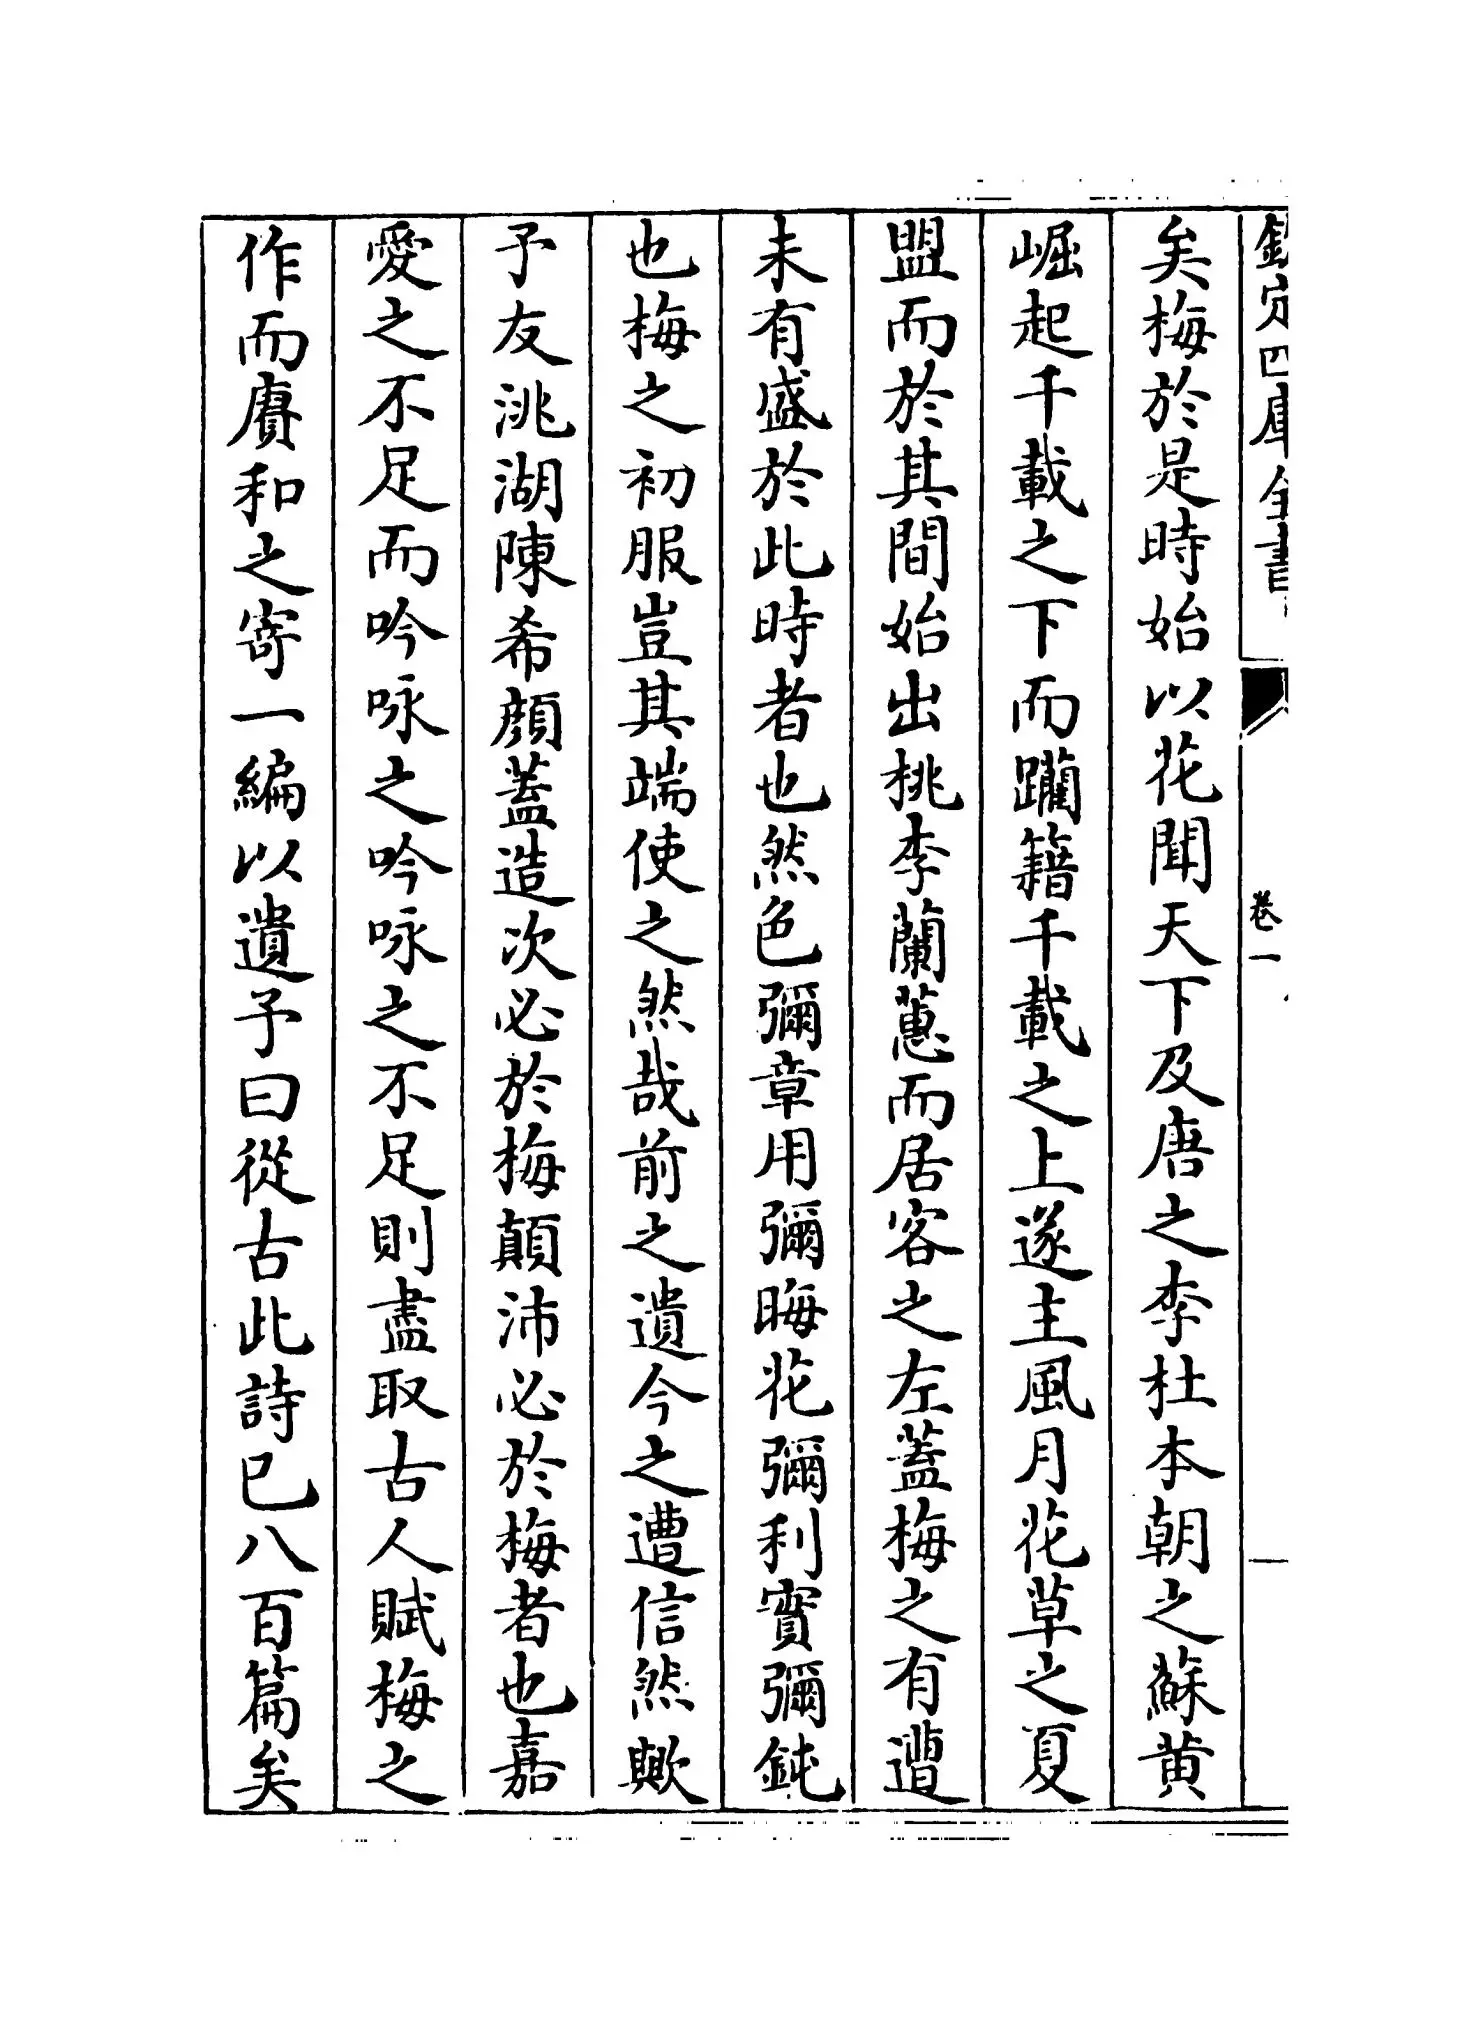 欽定四庫全書
卷一
矣梅於是時始以花聞天下及唐之李杜本朝之蘇黄
崛起千載之下而躪籍千載之上遂主風月花草之夏
盟而於其間始出桃李蘭蕙而居客之左蓋梅之有遭
未有盛於此時者也然色彌章用彌晦花彌利實彌鈍
也梅之初服豈其端使之然哉前之遺今之遭信然歟
予友洮湖陳希顔蓋造次必於梅顛沛必於梅者也嘉
愛之不足而吟咏之吟咏之不足則盡取古人賦梅之
作而賡和之寄一編以遺予曰從古此詩已八百篇矣